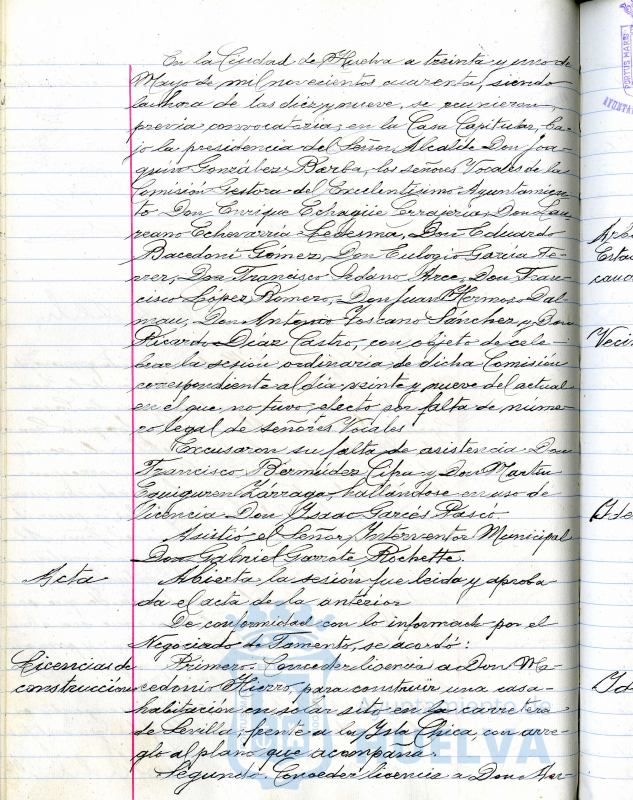 En la Ciudad de Huelva a treinta y uno de
Mayo de mil novecientos cuarenta, siendo
la hora de las diez y nueve, se reunieron,
previa convocatoria, en la Casa Capitular, ba-
jo la presidencia del Señor Alcalde Don Joa-
quín González Barba, los señores Vocales de la
Comisión Gestora del Excelentísimo Ayuntamien-
to Don Enrique Echagüe Cerrajería, Don Lau-
reano Echevarría Ledesma, Don Eduardo
Bacedoni Gómez, Don Eulogio García Fe-
rrer, Don Francisco Sedano Arce, Don Fran-
cisco López Romero, Don Juan Hermoso Dal-
mau, Don Antonio Toscano Sánchez y Don
Ricardo Díaz Castro, con objeto de cele-
brar la sesión ordinaria de dicha Comisión
correspondiente al día veinte y nueve del actual
en el que no tuvo efecto por falta de núme-
ro legal de señores Vocales
Excusaron su falta de asistencia Don
Francisco Bermúdez y Don Martín
Eguiguren Zárraga, hallándose en uso de
licencia Don Ysaac Garcés Pascó
Asistió el Señor Interventor Municipal
Don Gabriel Garrote Rochette.
Acta
Abierta la sesión fue leida y aproba
da el acta de la anterior
De conformidad con lo informado por el
Negociado de Fomento, se acordó:
Licencias de
construcciones
Primero. Conceder licencia a Don Ma-
cedonio Hierro, para construir una casa-
habitación en solar sito en la carretera
de Sevilla, frente a la Ysla Chica, con arre-
glo al plano que acompaña.
Segundo. Conceder licencia a Don
Ayuntamiento de
HUELVA
Veci
PORTUS MARIS